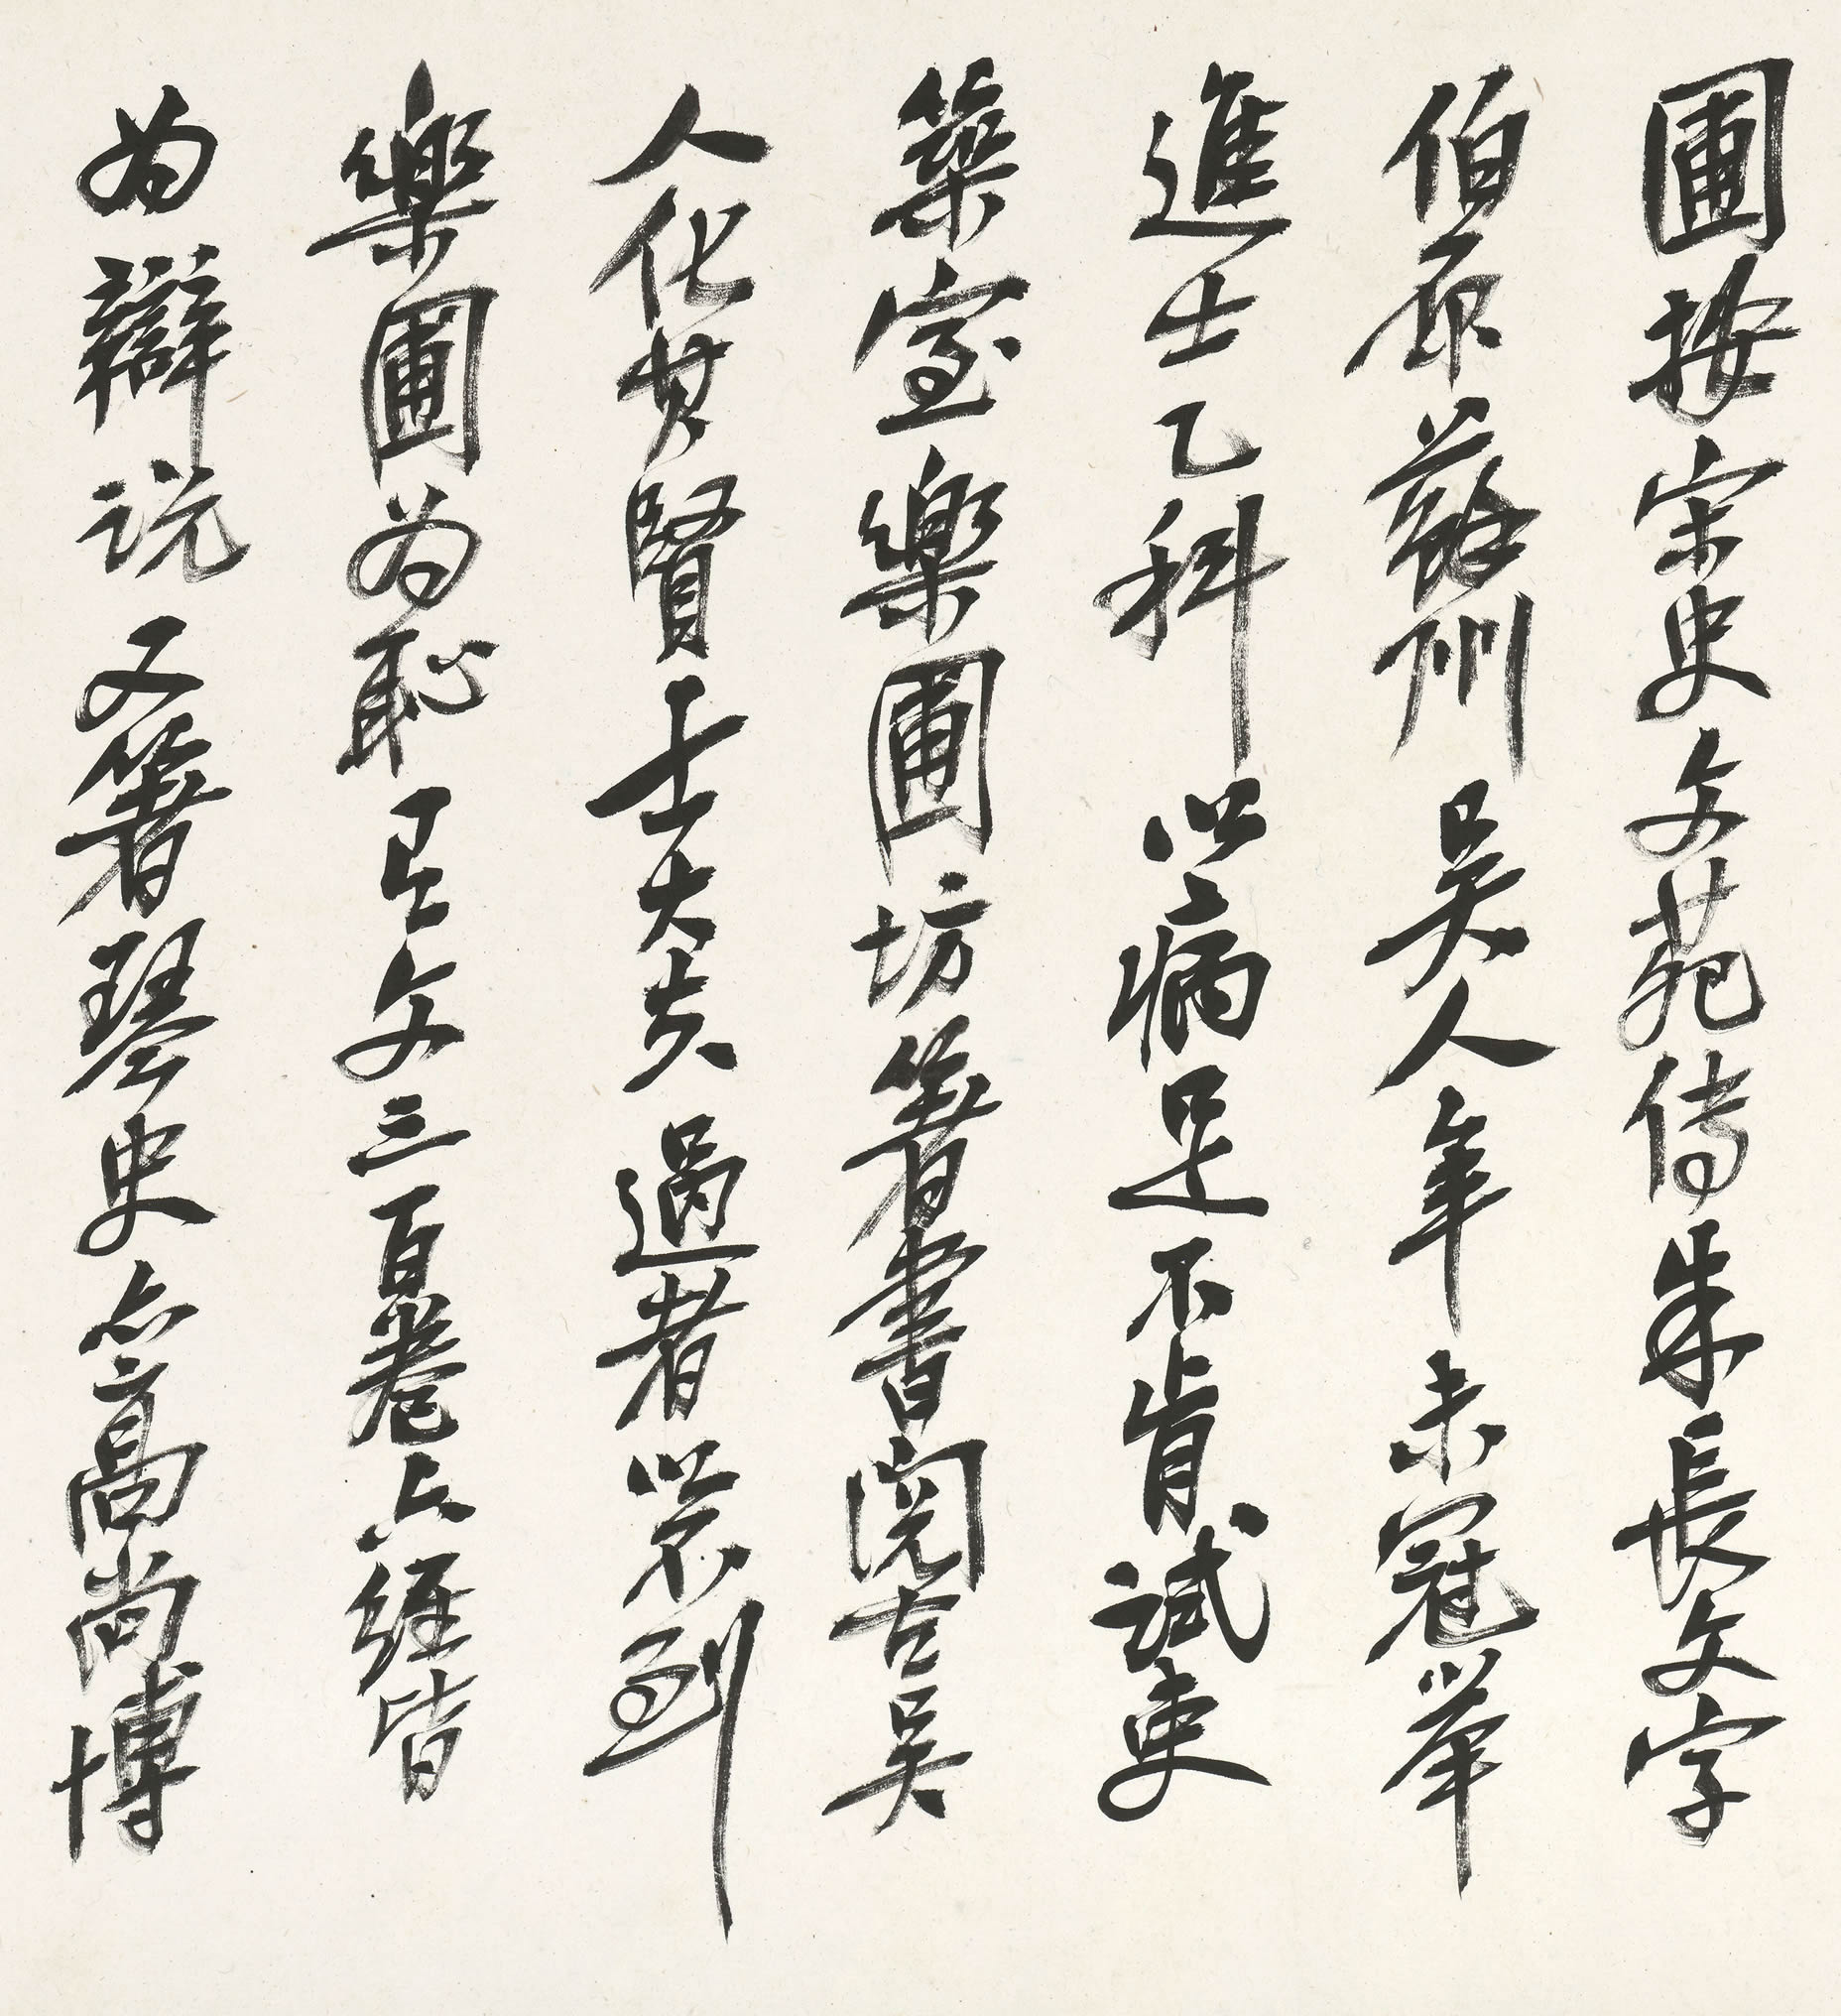 圃按宋史文苑傳朱長文字
伯原蘇州吳人年未冠舉
進士乙科以病足不肯試吏
築室樂圃坊著書閱古吳
人化其賢士大夫過者以不到
樂圃為恥有文三百卷六經皆
为辯说又著琴史亦高尚博